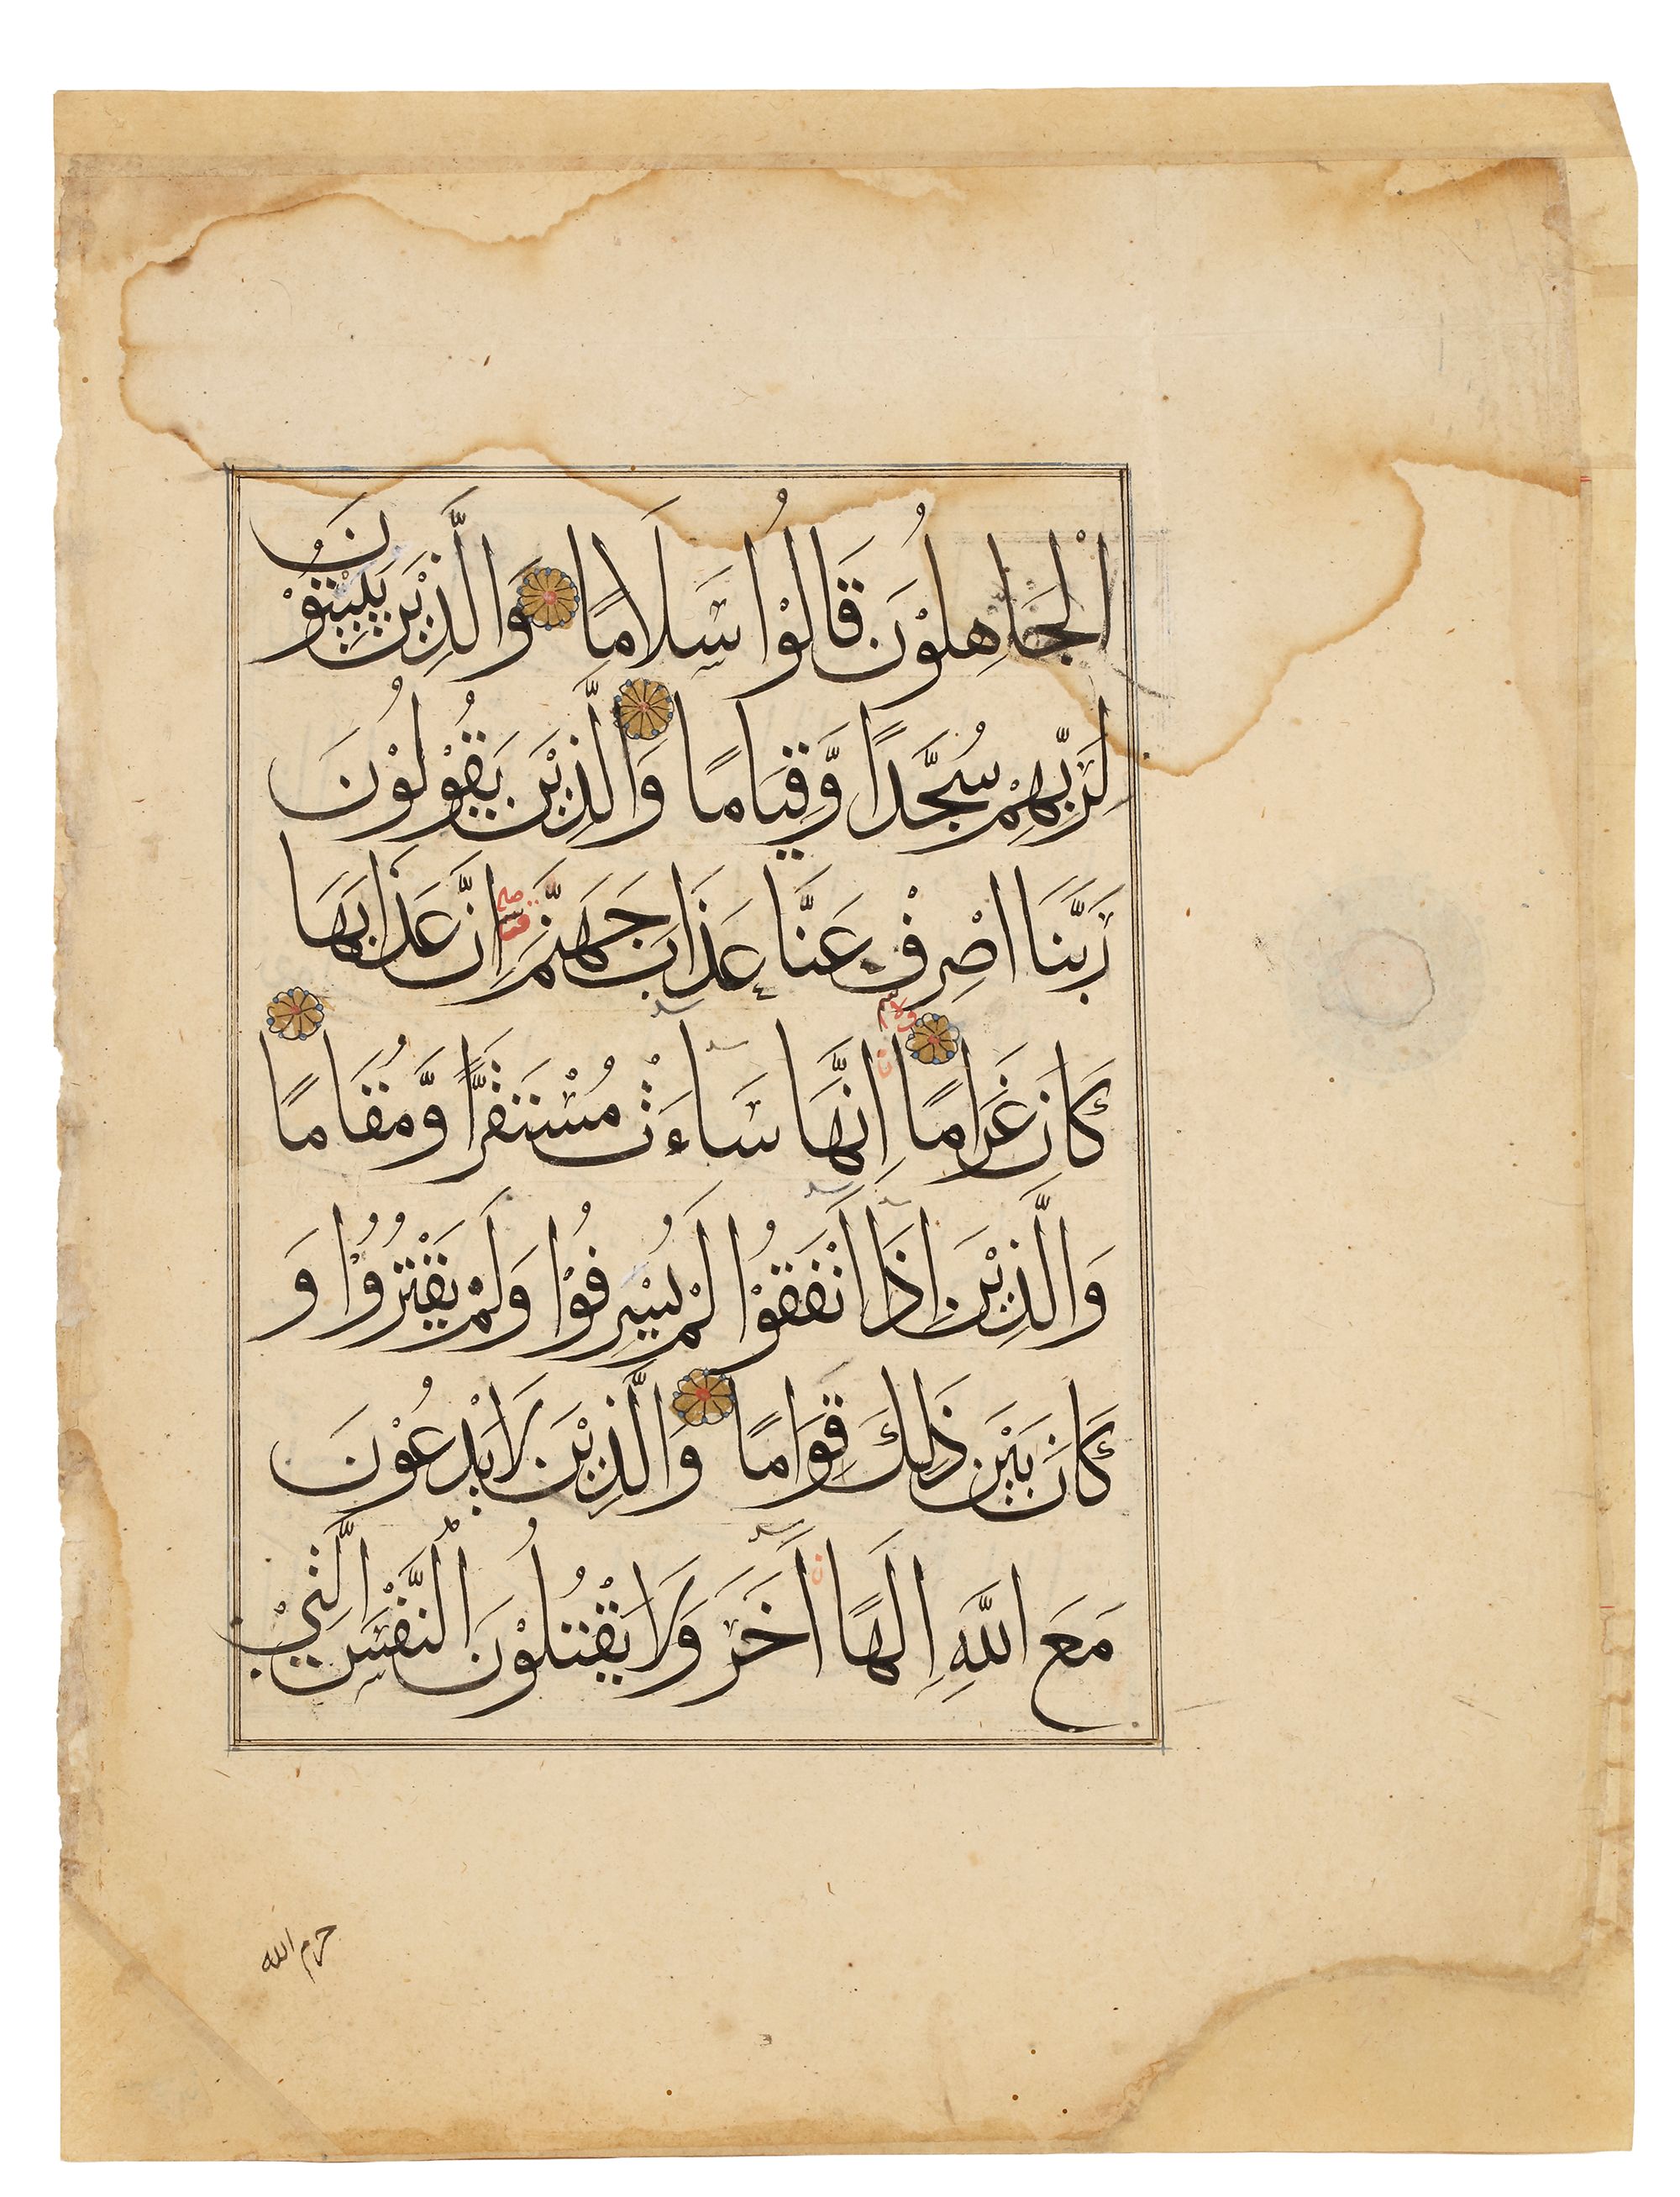 الْجَاهِلُوْنَ قَالُوْا سَلَامًا وَالَّذِيْنَ يَبِيْتُوْنَ
لِرَبِّهِمْ سُجَّدًا وَّقِيَامًا وَالَّذِيْنَ يَقُوْلُوْنَ
رَبَّنَا اصْرِفْ عَنَّا عَذَابَ جَهَنَّمَ اِنَّ عَذَابَهَا
كَانَ غَرَامًا اِنَّهَا سَاءَتْ مُسْتَقَرًّا وَّمُقَامًا
وَالَّذِيْنَ اِذَا اَنْفَقُوْا لَمْ يُسْرِفُوْا وَلَمْ يَقْتُرُوْا وَ
كَانَ بَيْنَ ذَلِكَ قَوَامًا وَالَّذِيْنَ لَا يَدْعُوْنَ
مَعَ اللَّهِ اِلَهًا اَخَرَ وَلَا يَقْتُلُوْنَ النَّفْسَ الَّتِيْ
حرم الله